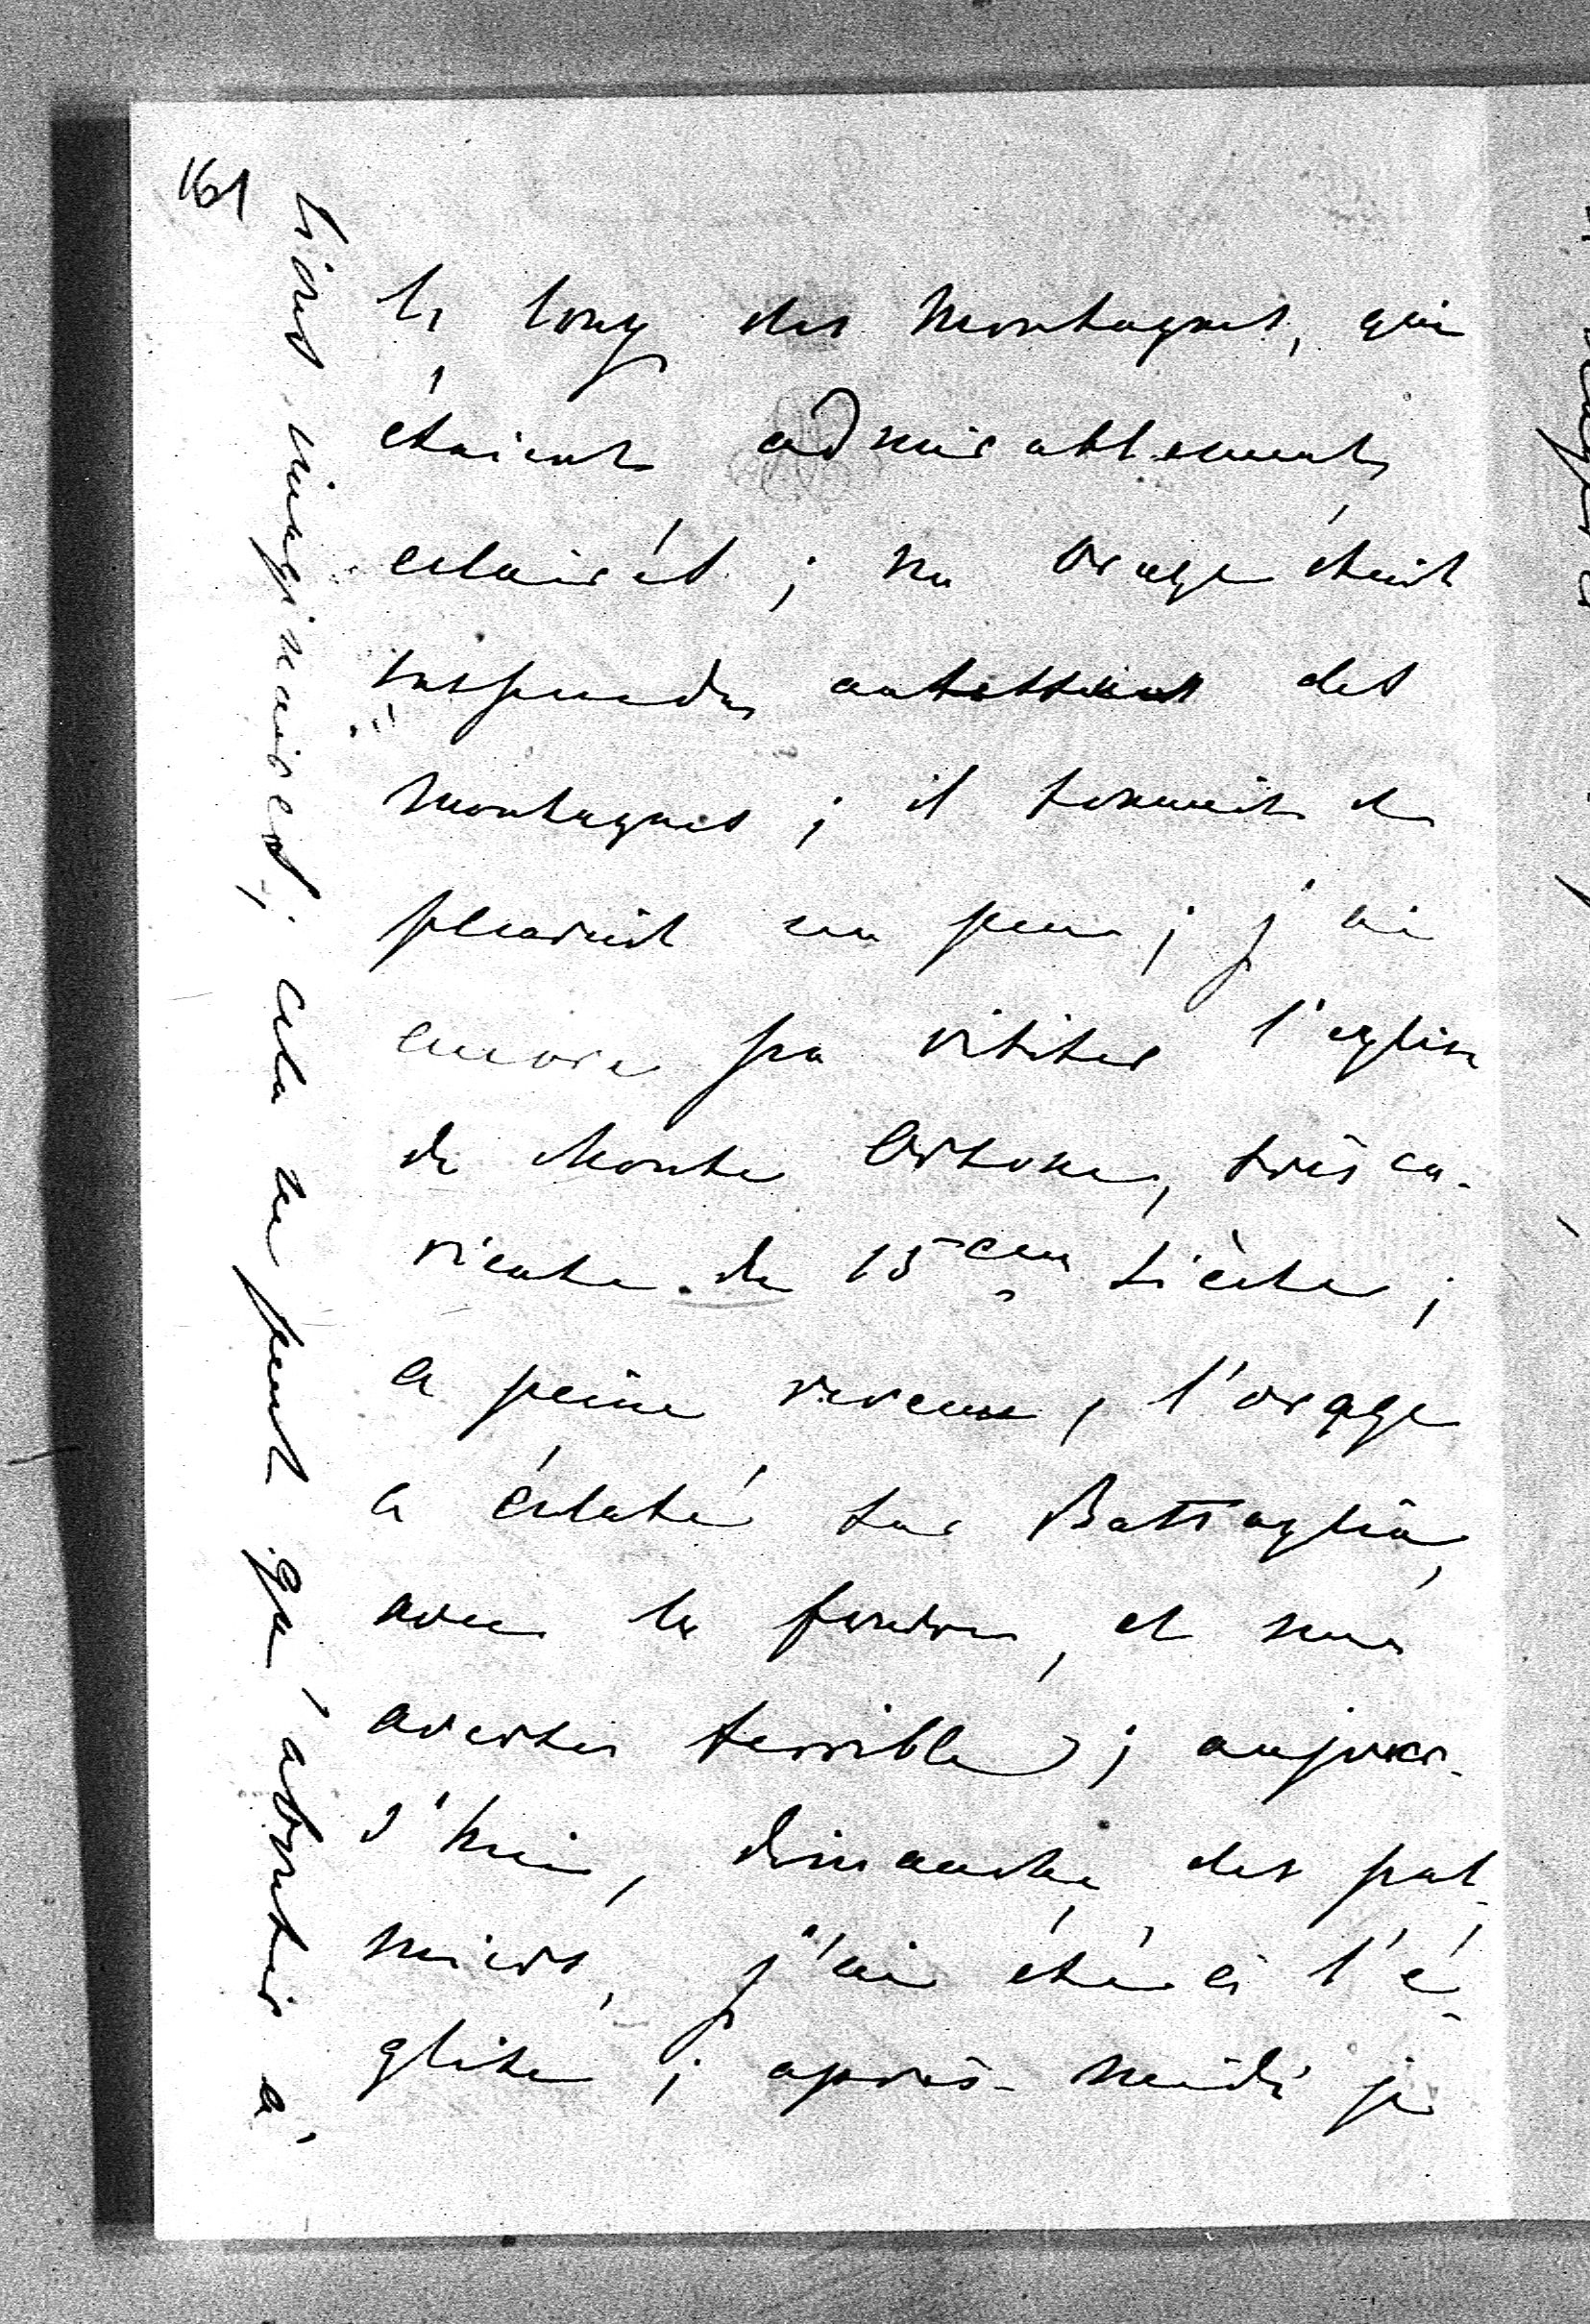 161
le long des Montagnes, qui
étaient admirablement
eclairés ; un orage était
suspendu audessus des
montagnes ; il tonnait et
pleuvait un peu ; j'ai
encore pu visiter l'eglise
de Monte Ortone, très cu-
rieuse du 15em siècle ;
a peine revenu, l'orage
a éclaté sur Battaglia,
avec la foudre, et une
averse terrible ; aujour-
d'hui, dimanche des pal-
miers, j'ai été à l'é-
glise ; après-midi je
tions imaginaires ; cela ne peut qu'aboutir a